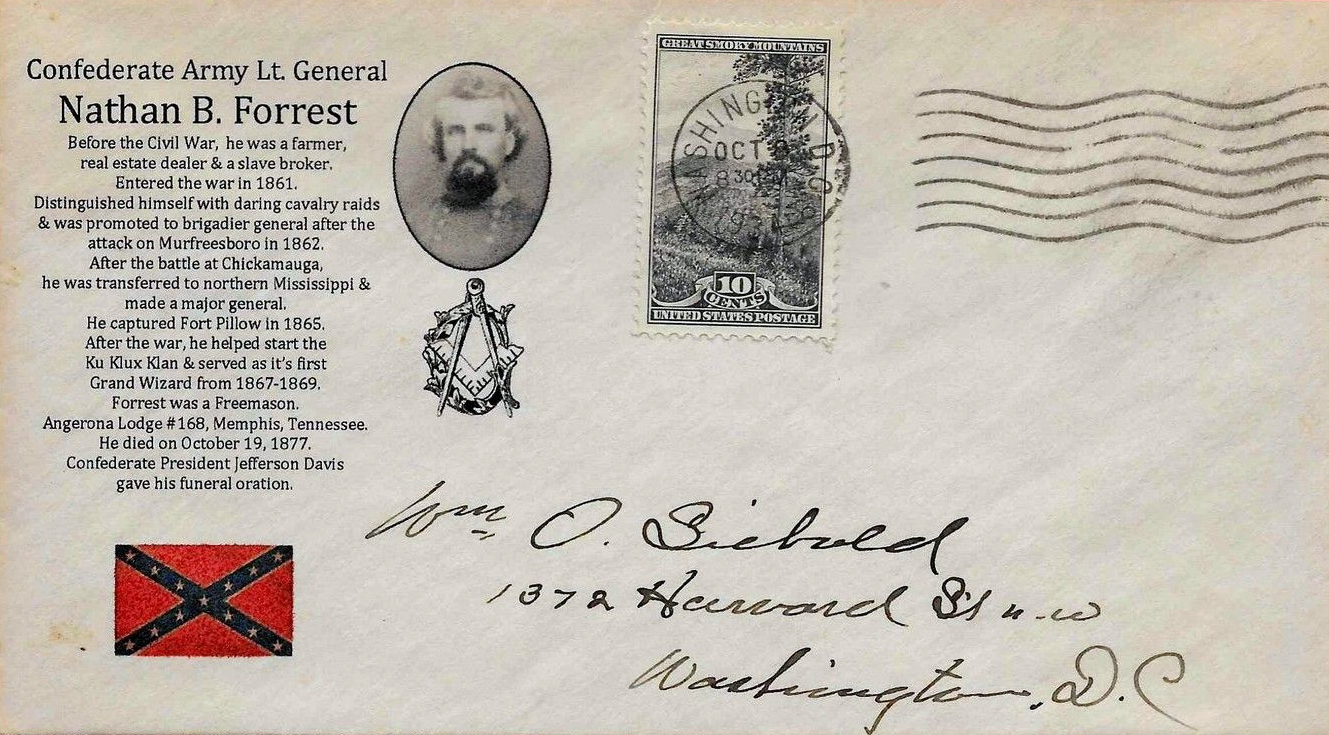 Confederate Army Lt. General
Nathan B. Forrest
Before the Civil War, he was a farmer,
real estate dealer & a slave broker.
Entered the war in 1861.
Distinguished himself with daring cavalry raids
& was promoted to brigadier general after the
attack on Murfreesboro in 1862.
After the battle at Chickamauga,
he was transferred to northern Mississippi &
made a major general.
He captured Fort Pillow in 1865.
After the war, he helped start the
Ku Klux Klan & served as it's first
Grand Wizard from 1867-1869.
Forrest was a Freemason.
Angerona Lodge #168, Memphis, Tennessee.
He died on October 19, 1877.
Confederate President Jefferson Davis
gave his funeral oration.
GREAT SMOKY MOUNTAINS
10
CENTS
UNITED STATES POSTAGE
WASHINGTON, D.C.
OCT
8 30
Wm O. Siebold
1372 Harvard St n.w
Washington, D.C